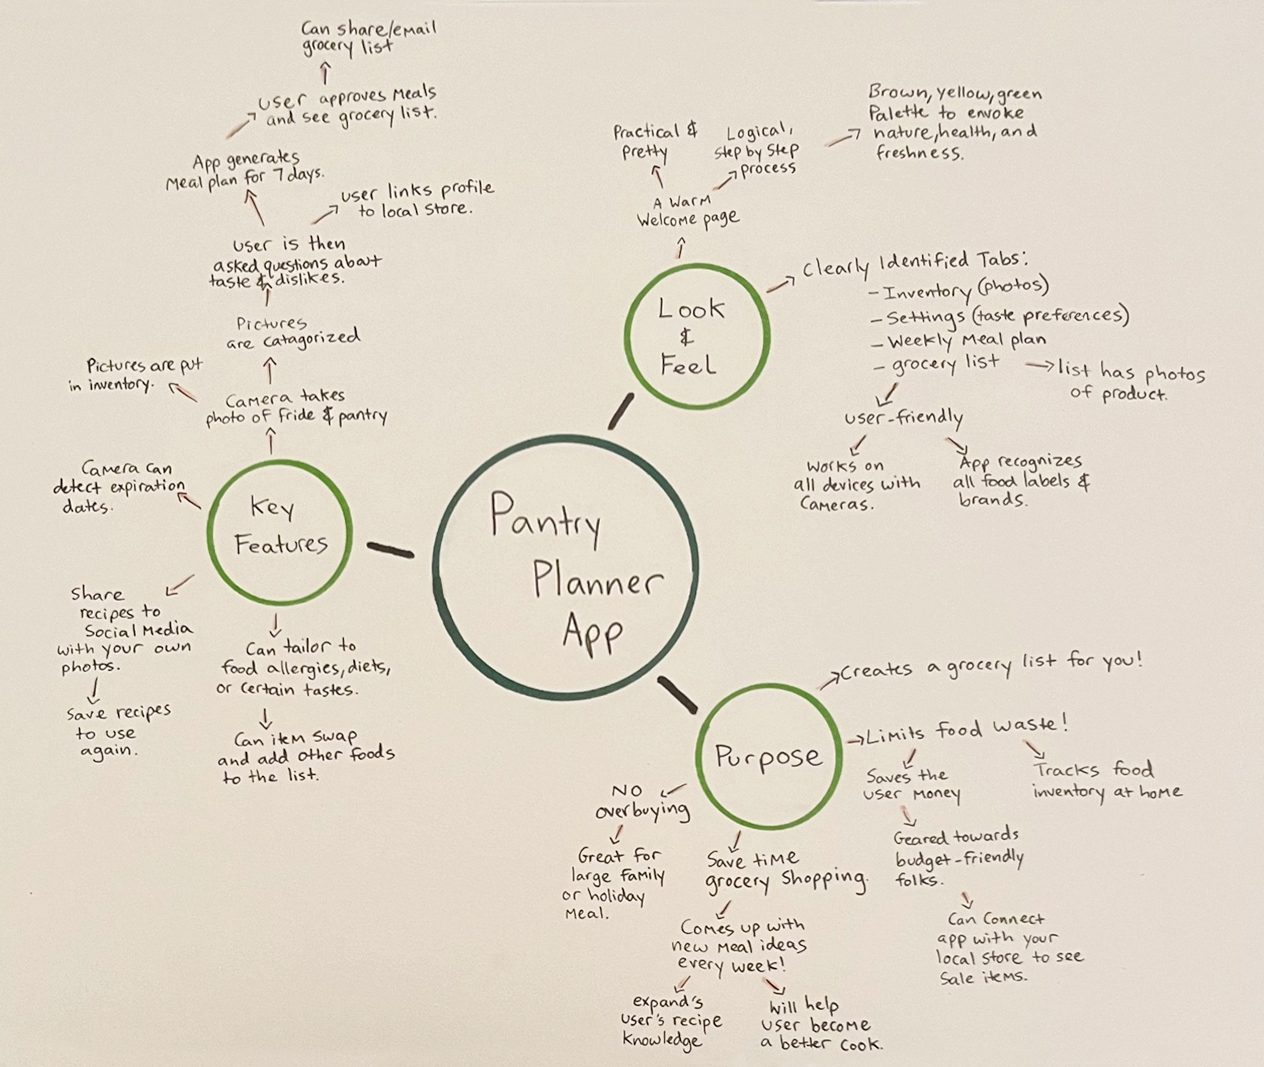 Can share/email
grocery list
User approves Meals
and see grocery list.
App generates
Meal plan for 7 days.
User links profile
to local store.
User is then
asked questions about
taste & dislikes.
Pictures
are catagorized
Pictures are put
in inventory.
Camera takes
photo of fride & pantry
Camera can
detect expiration
dates.
Key
Features
Share
recipes to
Social Media
with your own
photos.
Save recipes
to use
again.
Can tailor to
food allergies, diets,
or certain tastes.
Can item swap
and add other foods
to the list.
Pantry
Planner
App
Look
&
Feel
A Warm
Welcome page
Practical &
Pretty
Logical,
step by step
process
Brown, yellow, green
Palette to envoke
nature, health, and
freshness.
Clearly Identified Tabs:
- Inventory (photos)
- Settings (taste preferences)
- Weekly Meal plan
- grocery list
list has photos
of product.
user-friendly
Works on
all devices with
Cameras.
App recognizes
all food labels &
brands.
Purpose
Creates a grocery list for you!
Limits food waste!
Saves the
user money
Tracks food
inventory at home
Geared towards
budget-friendly
folks.
Can Connect
app with your
local store to see
Sale items.
NO
overbuying
Great for
large family
or holiday
Meal.
Save time
grocery shopping.
Comes up with
new meal ideas
every week!
expand's
user's recipe
knowledge
Will help
user become
a better cook.